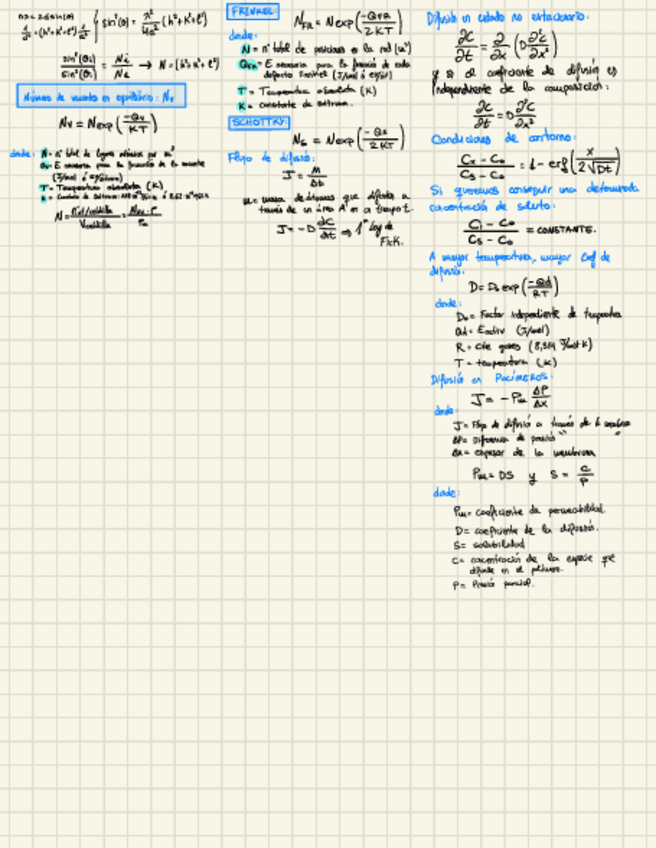 nλ = 2d sin(θ)
1/d² = (h²+k²+l²) 1/a²
sin²(θ) = λ²/4a² (h²+k²+l²)
sin²(θi)/sin²(θ1) = Ni/N1 → N = (h²+k²+l²)
Número de vacantes en equilibrio: Nv
Nv = N exp(-Qv/KT)
donde: N = nº total de lugares atómicos por m³
Qv = E necesaria para la formación de la vacante
(J/mol ó eV/átomo)
T = Temperatura absoluta (K)
K = Constante de Boltzmann
N = nºat/celdilla / Vceldilla = NAv · ρ / Pat
FRENKEL:
NFR = N exp(-QFR/2KT)
donde:
N = nº total de posiciones en la red (m³)
QFR = E necesaria para la formación de cada
defecto Frenkel (J/mol ó eV/át)
T = Temperatura absoluta (K)
K = constante de Boltzman.
SCHOTTKY:
Ns = N exp(-Qs/2KT)
Flujo de difusión:
J = M/At
M = masa de átomos que difunde a
través de un área A en un tiempo t.
J = -D dC/dx ⇒ 1ª ley de
Fick.
Difusión en estado no estacionario:
∂C/∂t = ∂/∂x (D ∂²C/∂x²)
y si el coeficiente de difusión es
independiente de la composición:
∂C/∂t = D ∂²C/∂x²
Condiciones de contorno:
Cx - Co / Cs - Co = 1 - erf(x / 2√Dt)
Si queremos conseguir una determinada
concentración de soluto:
C1 - Co / Cs - Co = CONSTANTE.
A mayor temperatura, mayor Coef de
difusión:
D = Do exp(-Qd/RT)
donde:
Do = Factor independiente de temperatura
Qd = Eactiv (J/mol)
R = cte gases (8,314 J/mol·K)
T = temperatura (K)
Difusión en POLÍMEROS:
J = -PM ΔP/Δx
donde:
J = Flujo de difusión a través de la membrana
ΔP = Diferencia de presión " "
Δx = espesor de la membrana
PM = DS y S = C/P
donde:
PM = coeficiente de permeabilidad.
D = coeficiente de la difusión.
S = solubilidad
C = concentración de la especie que
difunde en el polímero.
P = Presión parcial.